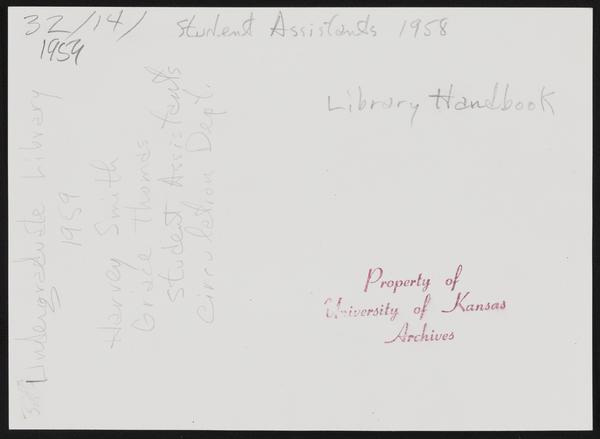 32/14/
1959
Student Assistants 1958
Library Handbook
Undergraduate Library
1959
Harvey Smith
Grace Thomas
Student Assistants
Circulation Dept.
Property of
University of Kansas
Archives